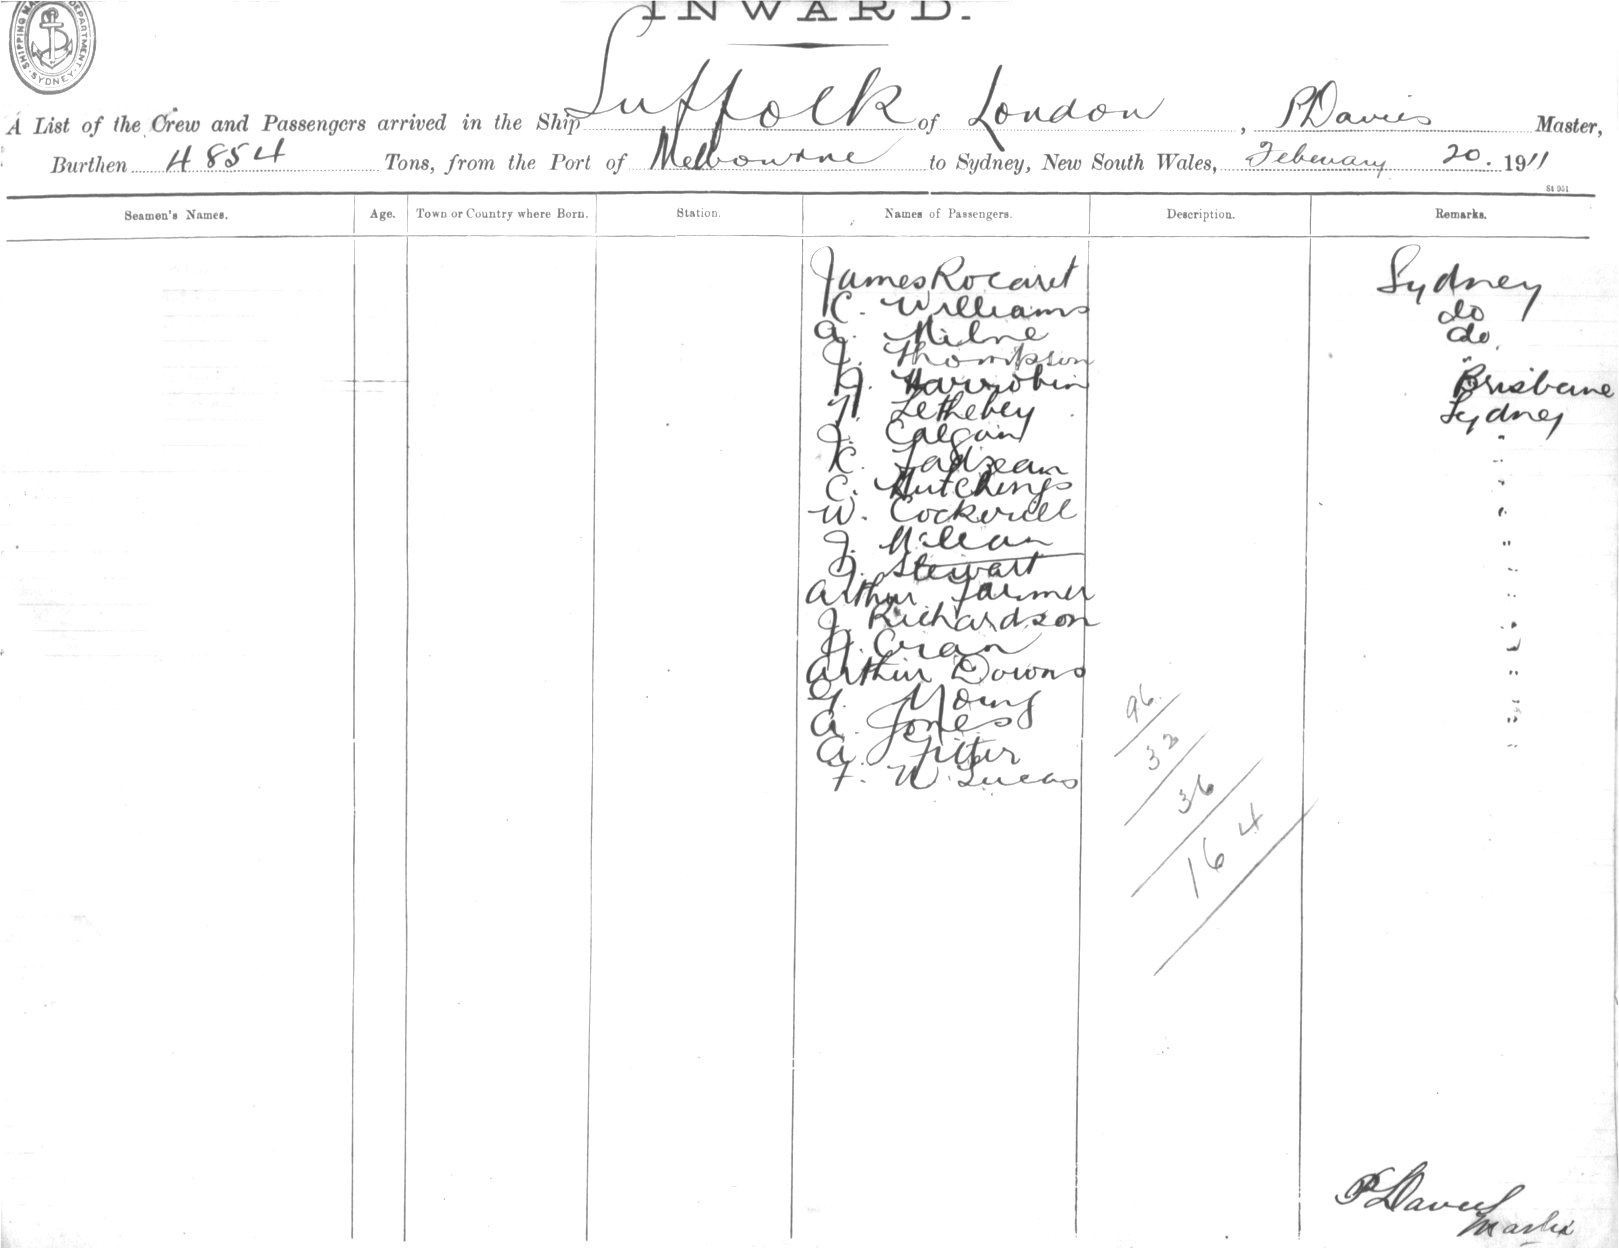 INWARD.
SHIPPING DEPARTMENT SYDNEY
A List of the Crew and Passengers arrived in the Ship Suffolk of London, P Davies Master,
Burthen 4854 Tons, from the Port of Melbourne to Sydney, New South Wales, February 20. 1911
St 951
Seamen's Names. Age. Town or Country where Born. Station. Names of Passengers. Description. Remarks.
James Rocaret Sydney
C. Williams do
A. Milne do
J. Thompson "
Harrobin Brisbane
Lethebey Sydney
J. "
K. "
C. Hutchings "
W. Cockerill "
J. McLean "
Stewart "
Arthur Farmer "
J. Richardson "
H. Cran "
Arthur Downs "
G. Young "
A. Jones "
A. Fitter "
F. W. Lucas
96
32
36
164
P Davies
Master